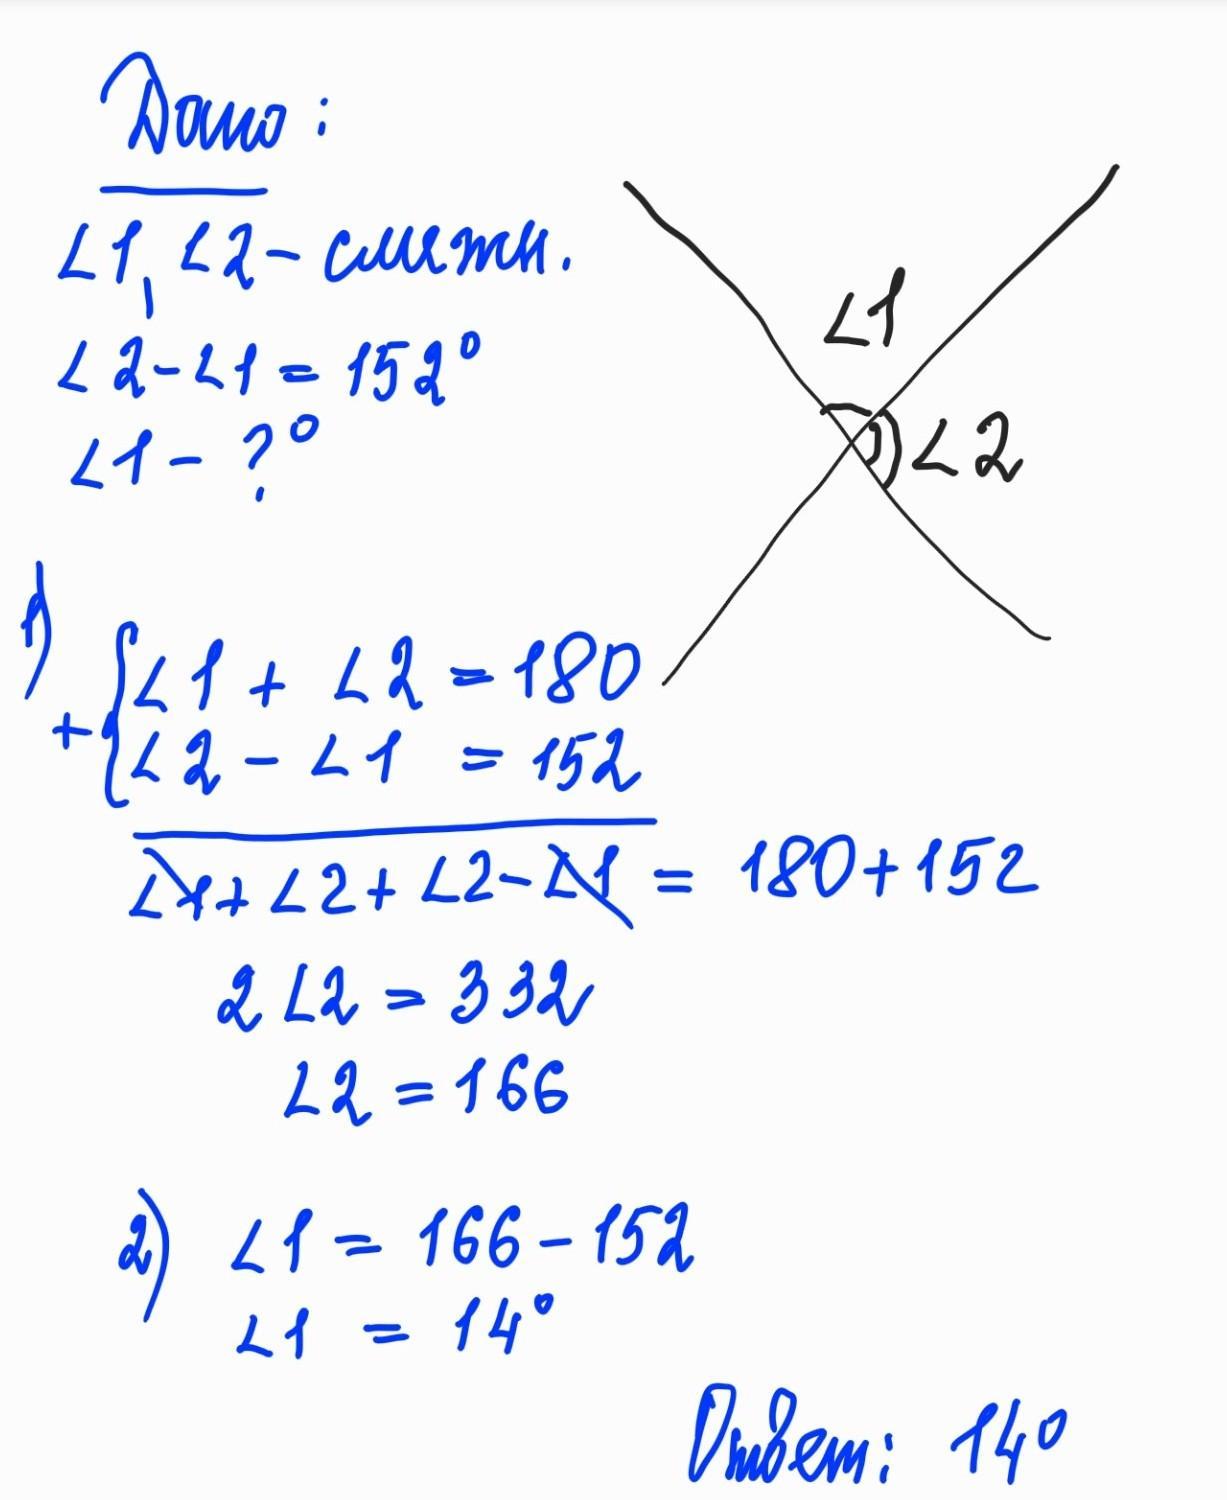 Дано:
∠1, ∠2 - смежн.
∠2 - ∠1 = 152°
∠1 - ?°
∠1
∠2
1)
{∠1 + ∠2 = 180
+
{∠2 - ∠1 = 152
∠1 + ∠2 + ∠2 - ∠1 = 180 + 152
2∠2 = 332
∠2 = 166
2) ∠1 = 166 - 152
∠1 = 14°
Ответ: 14°